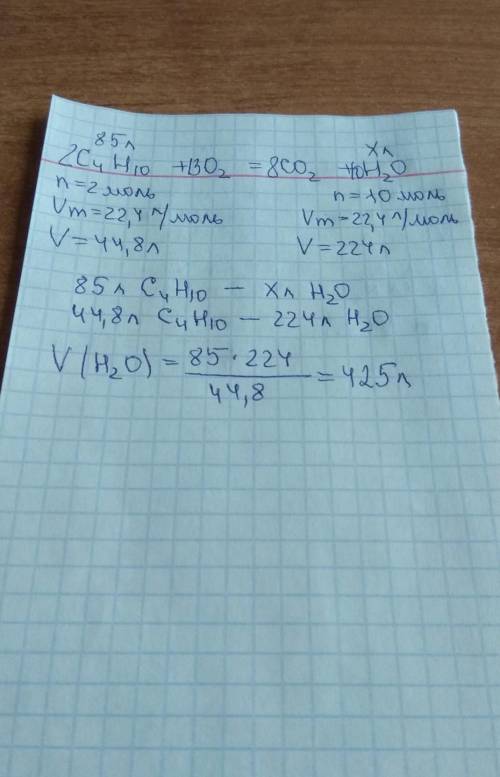 85л хл
2C₄H₁₀ +13O₂ =8CO₂ +10H₂O
n=2моль n=10моль
Vm=22,4л/моль Vm=22,4л/моль
V=44,8л V=224л
85л C₄H₁₀ — хл H₂O
44,8л C₄H₁₀ — 224л H₂O
V(H₂O) = 85·224 / 44,8 = 425л